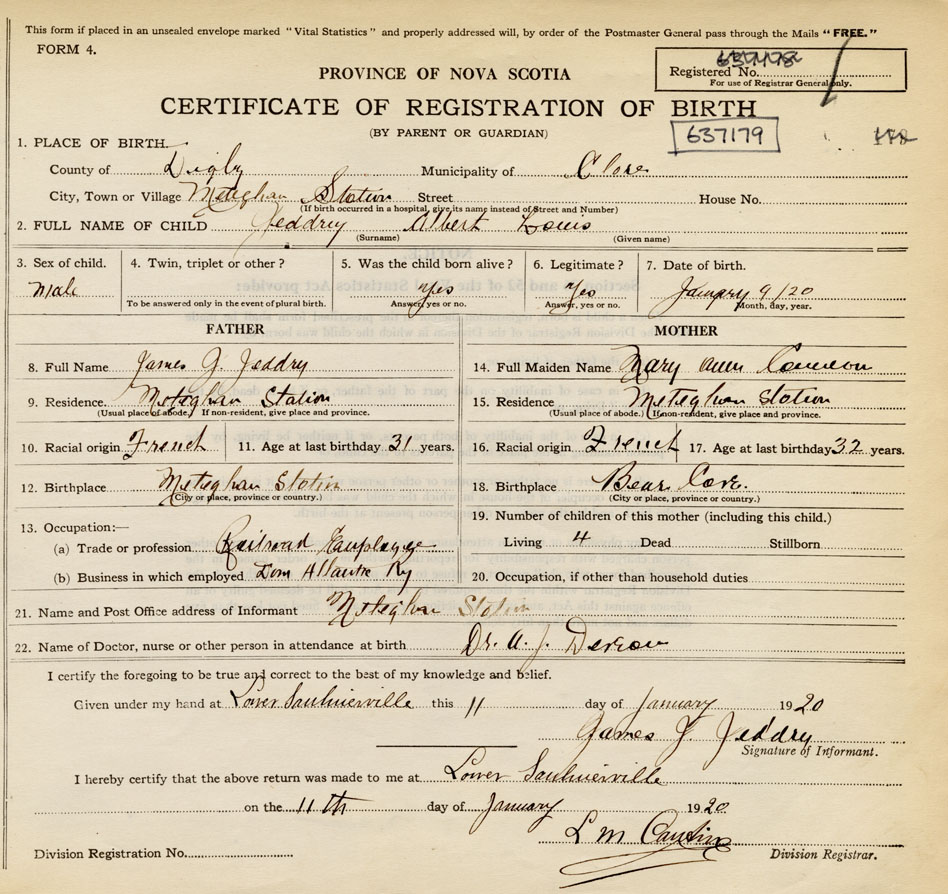 This form if placed in an unsealed envelope marked "Vital Statistics" and properly addressed will, by order of the Postmaster General pass through the Mails "FREE."
FORM 4.
PROVINCE OF NOVA SCOTIA
Registered No.
For use of Registrar General only.
CERTIFICATE OF REGISTRATION OF BIRTH
(BY PARENT OR GUARDIAN)
637179
1. PLACE OF BIRTH.
County of Digby Municipality of Clare
City, Town or Village Meteghan Station Street House No.
(If birth occurred in a hospital, give its name instead of Street and Number)
2. FULL NAME OF CHILD Jeddry Albert Louis
(Surname) (Given name)
3. Sex of child. 4. Twin, triplet or other? 5. Was the child born alive? 6. Legitimate? 7. Date of birth.
Male Yes Yes January 9/20
To be answered only in the event of plural birth. Answer, yes or no. Answer, yes or no. Month, day, year.
FATHER MOTHER
8. Full Name James J. Jeddry 14. Full Maiden Name Mary Ann Comeau
9. Residence Meteghan Station 15. Residence Meteghan Station
(Usual place of abode.) If non-resident, give place and province. (Usual place of abode.) If non-resident, give place and province.
10. Racial origin French 11. Age at last birthday 31 years. 16. Racial origin French 17. Age at last birthday 32 years.
12. Birthplace Meteghan Station 18. Birthplace Bear Cove.
(City or place, province or country.) (City or place, province or country.)
13. Occupation:— 19. Number of children of this mother (including this child.)
(a) Trade or profession Railroad Employee Living 4 Dead Stillborn
(b) Business in which employed Dom Atlantic Ry 20. Occupation, if other than household duties
21. Name and Post Office address of Informant Meteghan Station
22. Name of Doctor, nurse or other person in attendance at birth Dr. A. J.
I certify the foregoing to be true and correct to the best of my knowledge and belief.
Given under my hand at Lower Saulnierville this 11 day of January 1920
James J. Jeddry
Signature of Informant.
I hereby certify that the above return was made to me at Lower Saulnierville
on the 11th day of January 1920
L M
Division Registration No. Division Registrar.